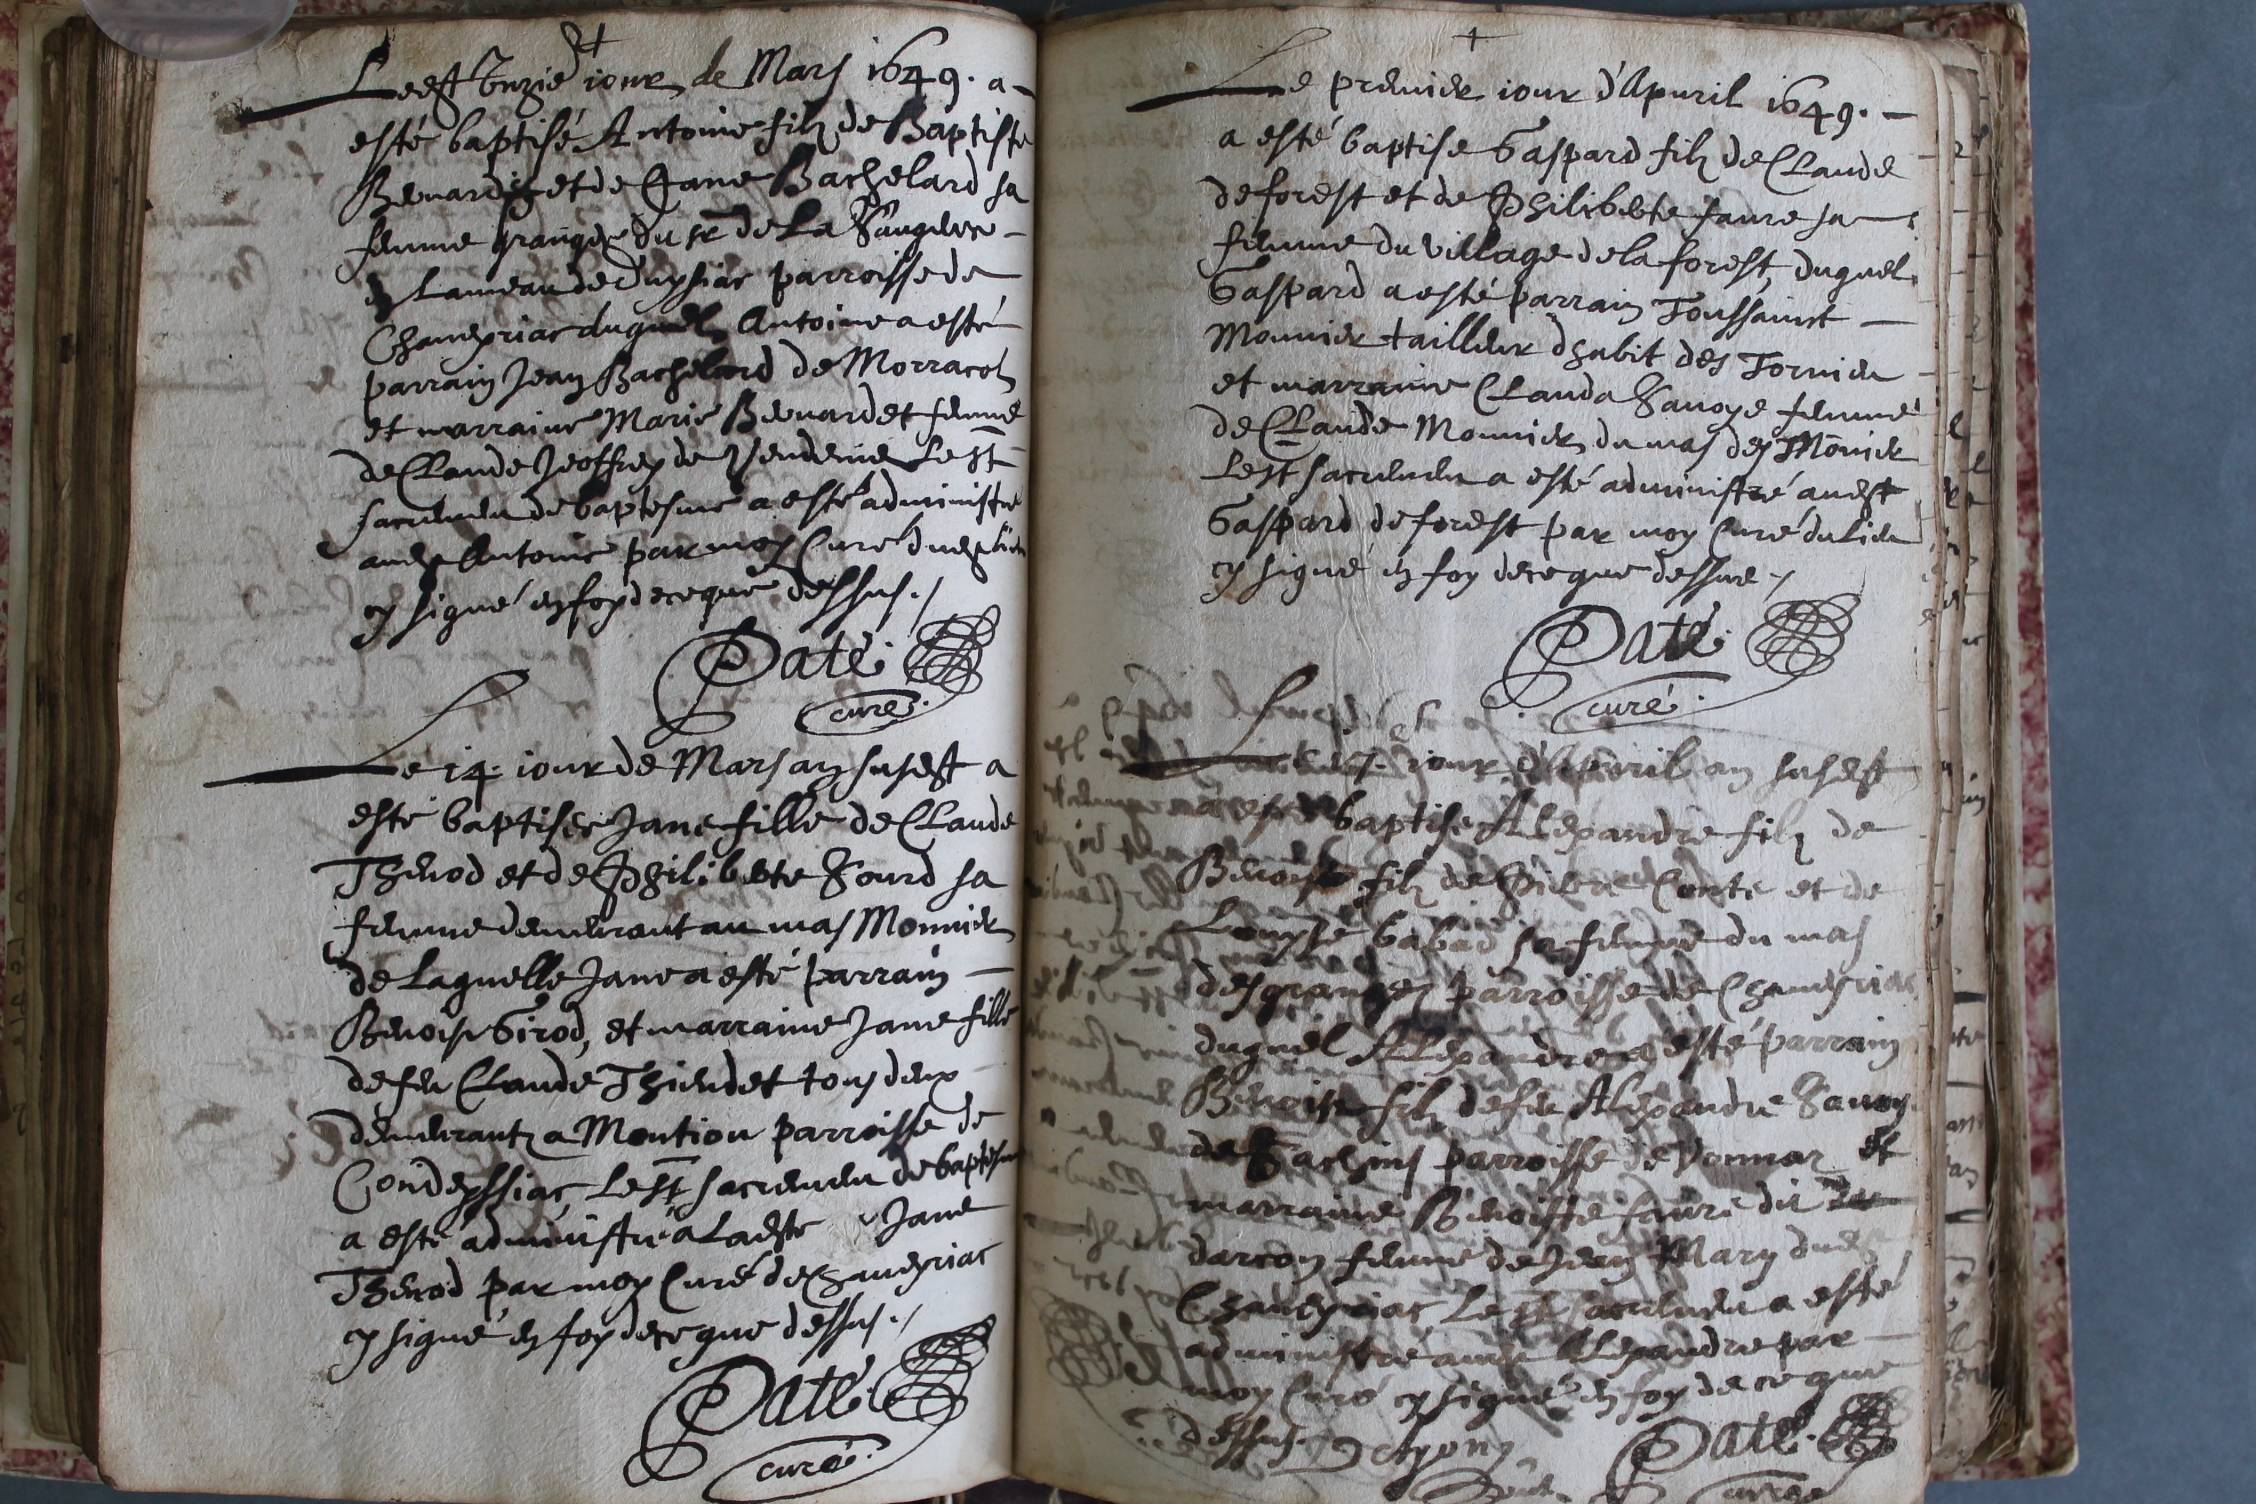 Le est unzie jour de Mars 1649. a
esté baptisé Antoine filz de Baptiste
Benard et de Jane Bachelard sa
femme granger du sr de La
Lameau de parroisse de
Chaneyriac duquel Antoine a esté
parrain Jean Bachelard de Morracol
et marraine Marie Benardet femme
de Claude Jeoffrey de Vendeine Le st
sacrement de baptesme a esté administré
audt Antoine par moy Curé dudt lieu
cy signé en foy de ce que dessus./
Paté.
curé.
Le 14. jour de Mars an susdt a
esté baptisee Jane fille de Claude
Thenod et de Philiberte Sourd sa
femme demeurant au mas Monnier
de Laquelle Jane a esté parrain
Benoist Girod, et marraine Jane fille
de feu Claude Thiendet tous deux
demeurantz a Montiou parroisse de
Condeyssiac, Le st sacrement de baptesme
a esté administré a Ladte Jane
Thenod par moy Curé de Chaneyriac
cy signé en foy de ce que dessus./
Paté.
curé.
Le premier jour d'Apuril 1649.
a esté baptise Gaspard filz de Claude
deforest et de Philiberte faure sa
femme du village de la forest, duquel
Gaspard a esté parrain Toussainct
Monnier tailleur dhabit des Tornier
et marraine Clauda Savoye femme
de Claude Monnier du mas des Monier
Le st sacrement a esté administré audt
Gaspard deforest par moy Curé du Lieu
cy signé en foy de ce que dessus./
Paté.
curé.
Le jour d'Apvril an susdt
a esté baptisé Alexandre filz de
Benoist filz de Pierre Conte et de
Louyse babad sa femme du mas
des granges parroisse de Chaneyriac
duquel Alexandre a esté parrain
Benoist filz de feu Alexandre Savoy
de parroisse de Vonnas et
marraine Benoiste faure dit
darcon femme de Jean Mary dudt
Chaneyriac Le st sacrement a esté
administré audt Alexandre par
moy Curé cy signé en foy de ce que
dessus.
Paté.
curé